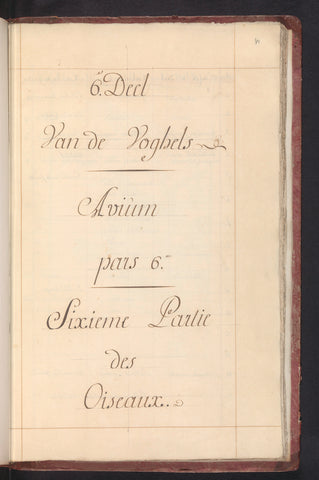 6. Deel
Van de Voghels
Aviüm
pars 6.
Sixieme Partie
des
Oiseaux..